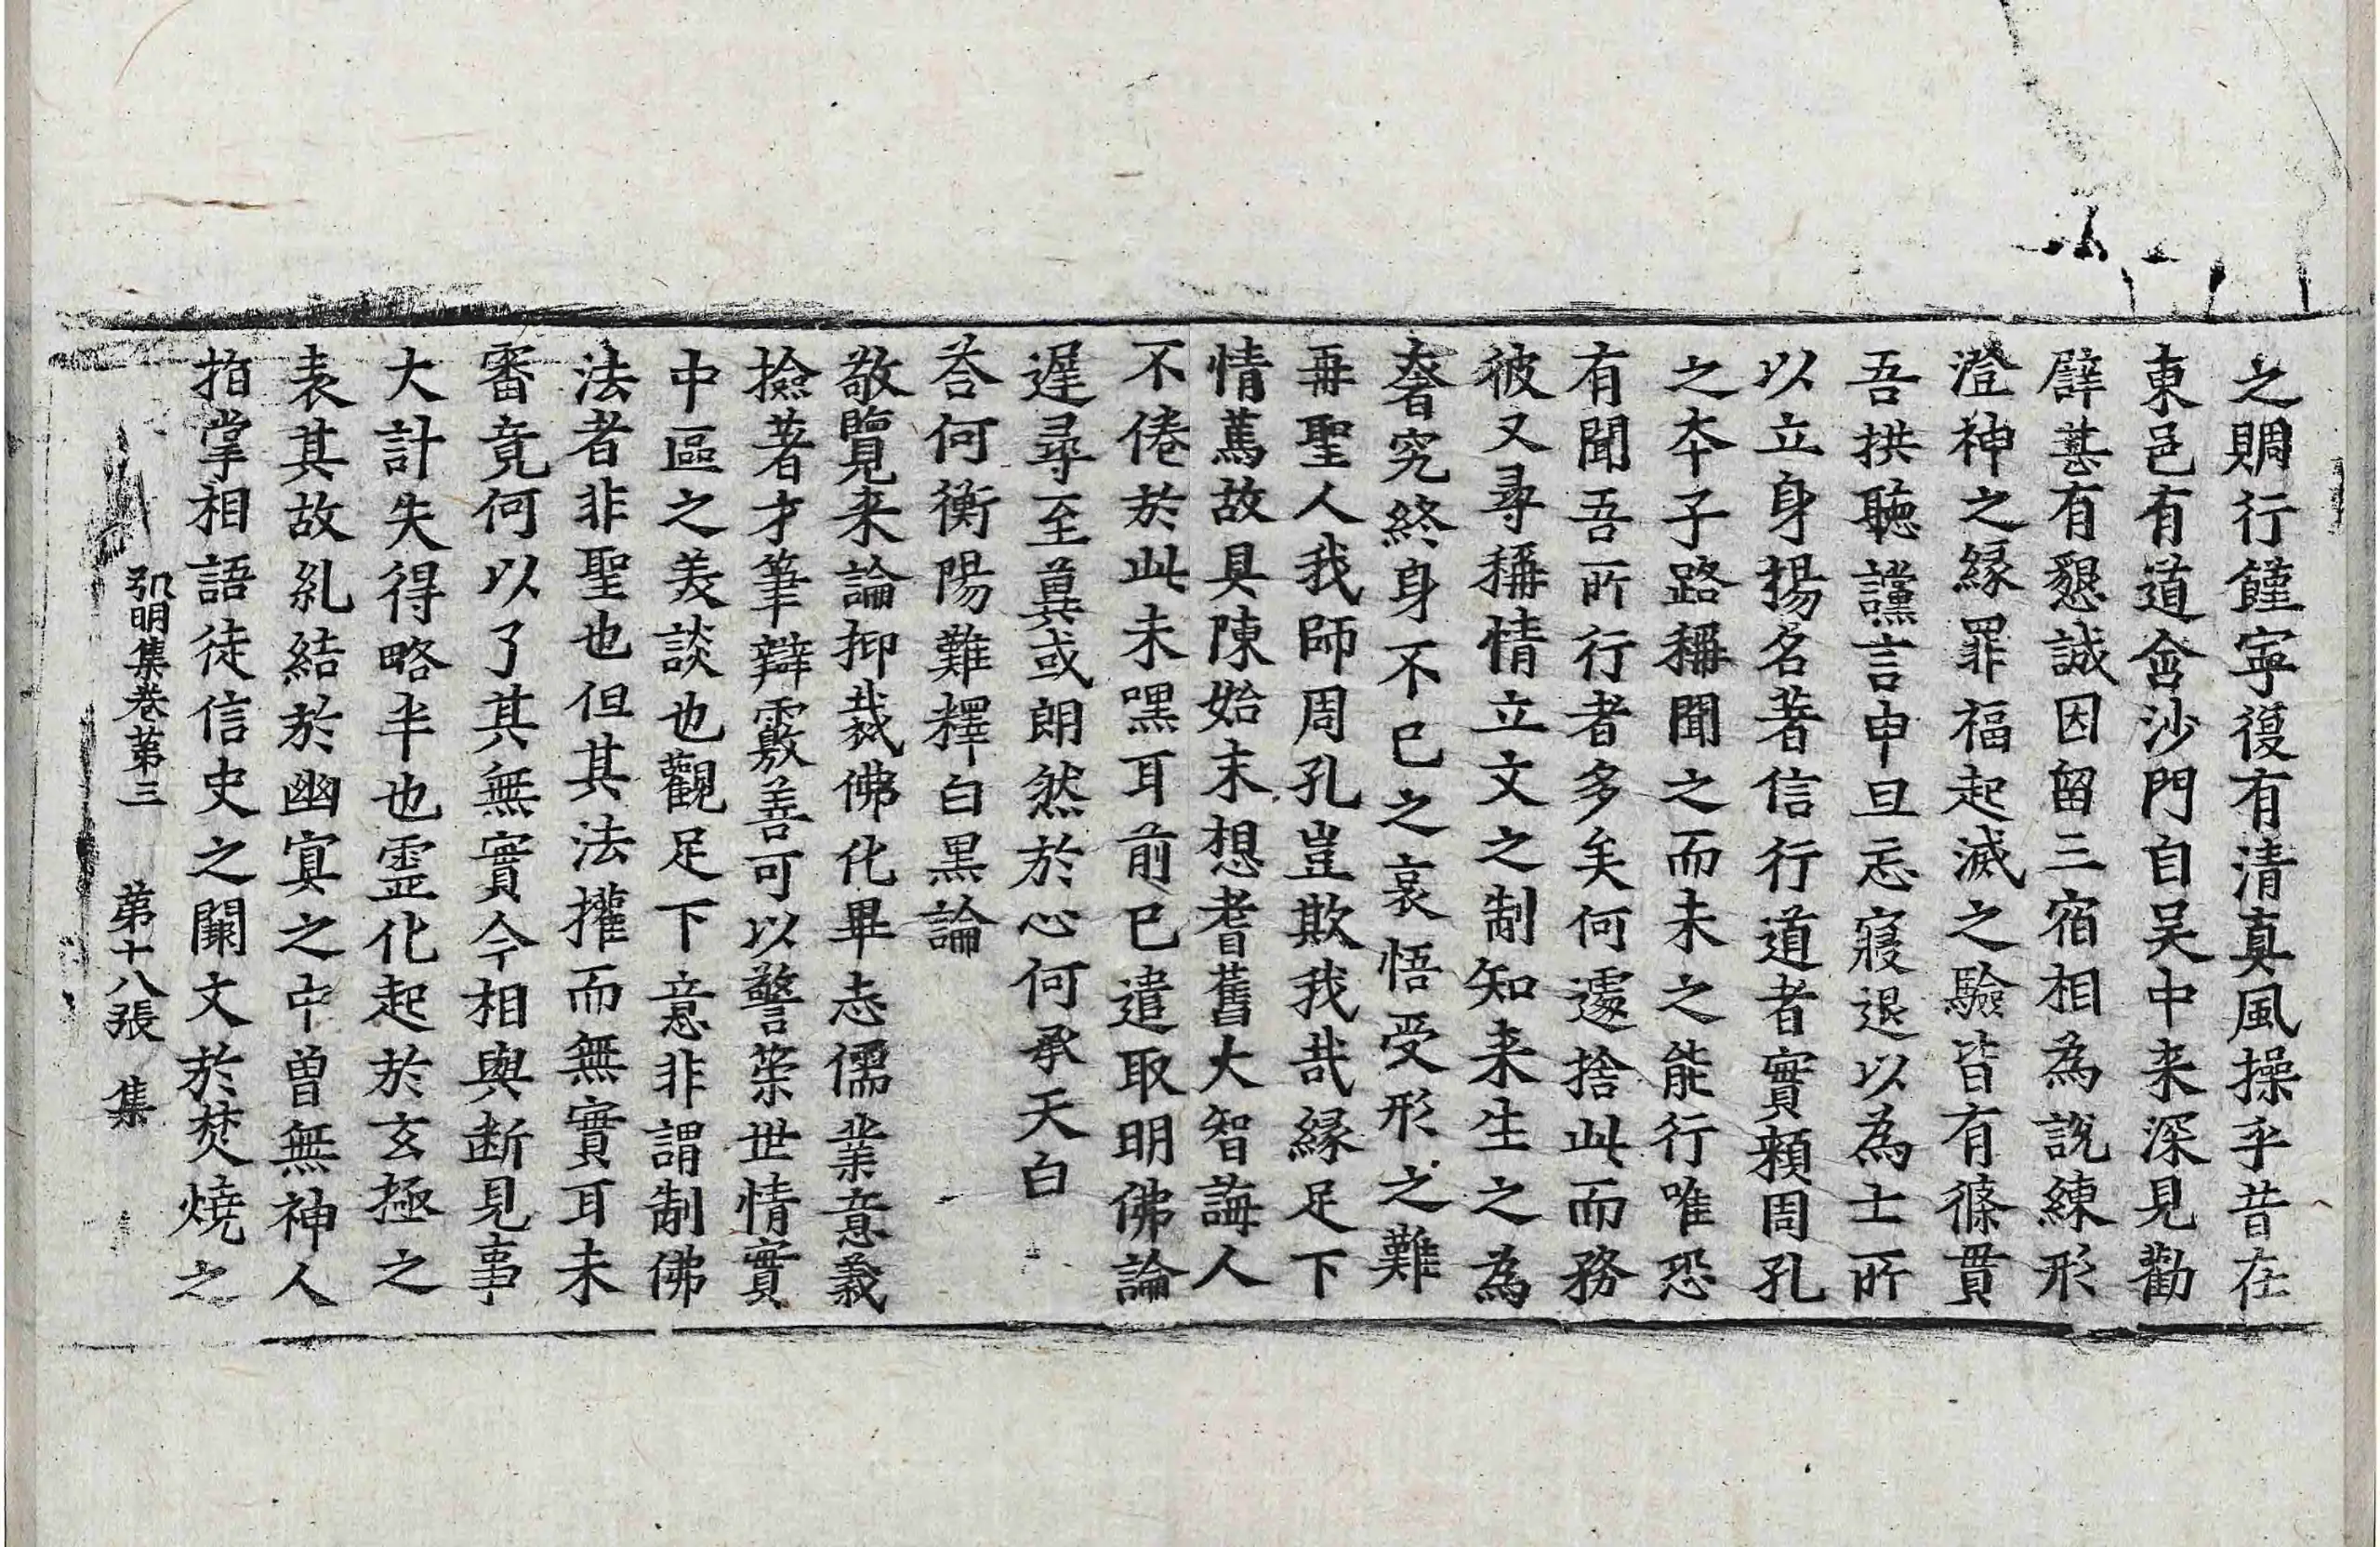 之賙行饉寧復有清真風操乎昔在
東邑有道含沙門自吴中来深見勸
譬甚有懇誠因留三宿相為說練形
澄神之緣罪福起滅之驗皆有條貫
吾拱聽讜言申旦忘寢退以為士所
以立身揚名著信行道者實頼周孔
之夲子路稱聞之而未之能行唯恐
有聞吾所行者多矣何遽捨此而務
彼又尋稱情立文之制知来生之為
奢究終身不已之哀悟受形之難
再聖人我師周孔豈欺我哉緣足下
情篤故具陳始末想耆舊大智誨人
不倦於此未嘿耳前已遣取明佛論
遲尋至冀或朗然於心何承天白
荅何衡陽難釋白黒論
敬覽来論抑裁佛化畢志儒業意義
撿著才筆辯覈善可以警策世情實
中區之美談也觀足下意非謂制佛
法者非聖也但其法權而無實耳未
審竟何以了其無實今相與断見事
大計失得略半也霊化起於玄極之
表其故糺結於幽冥之中曾無神人
指掌相語徒信史之闕文於焚燒之
弘明集卷第三 第十八張 集